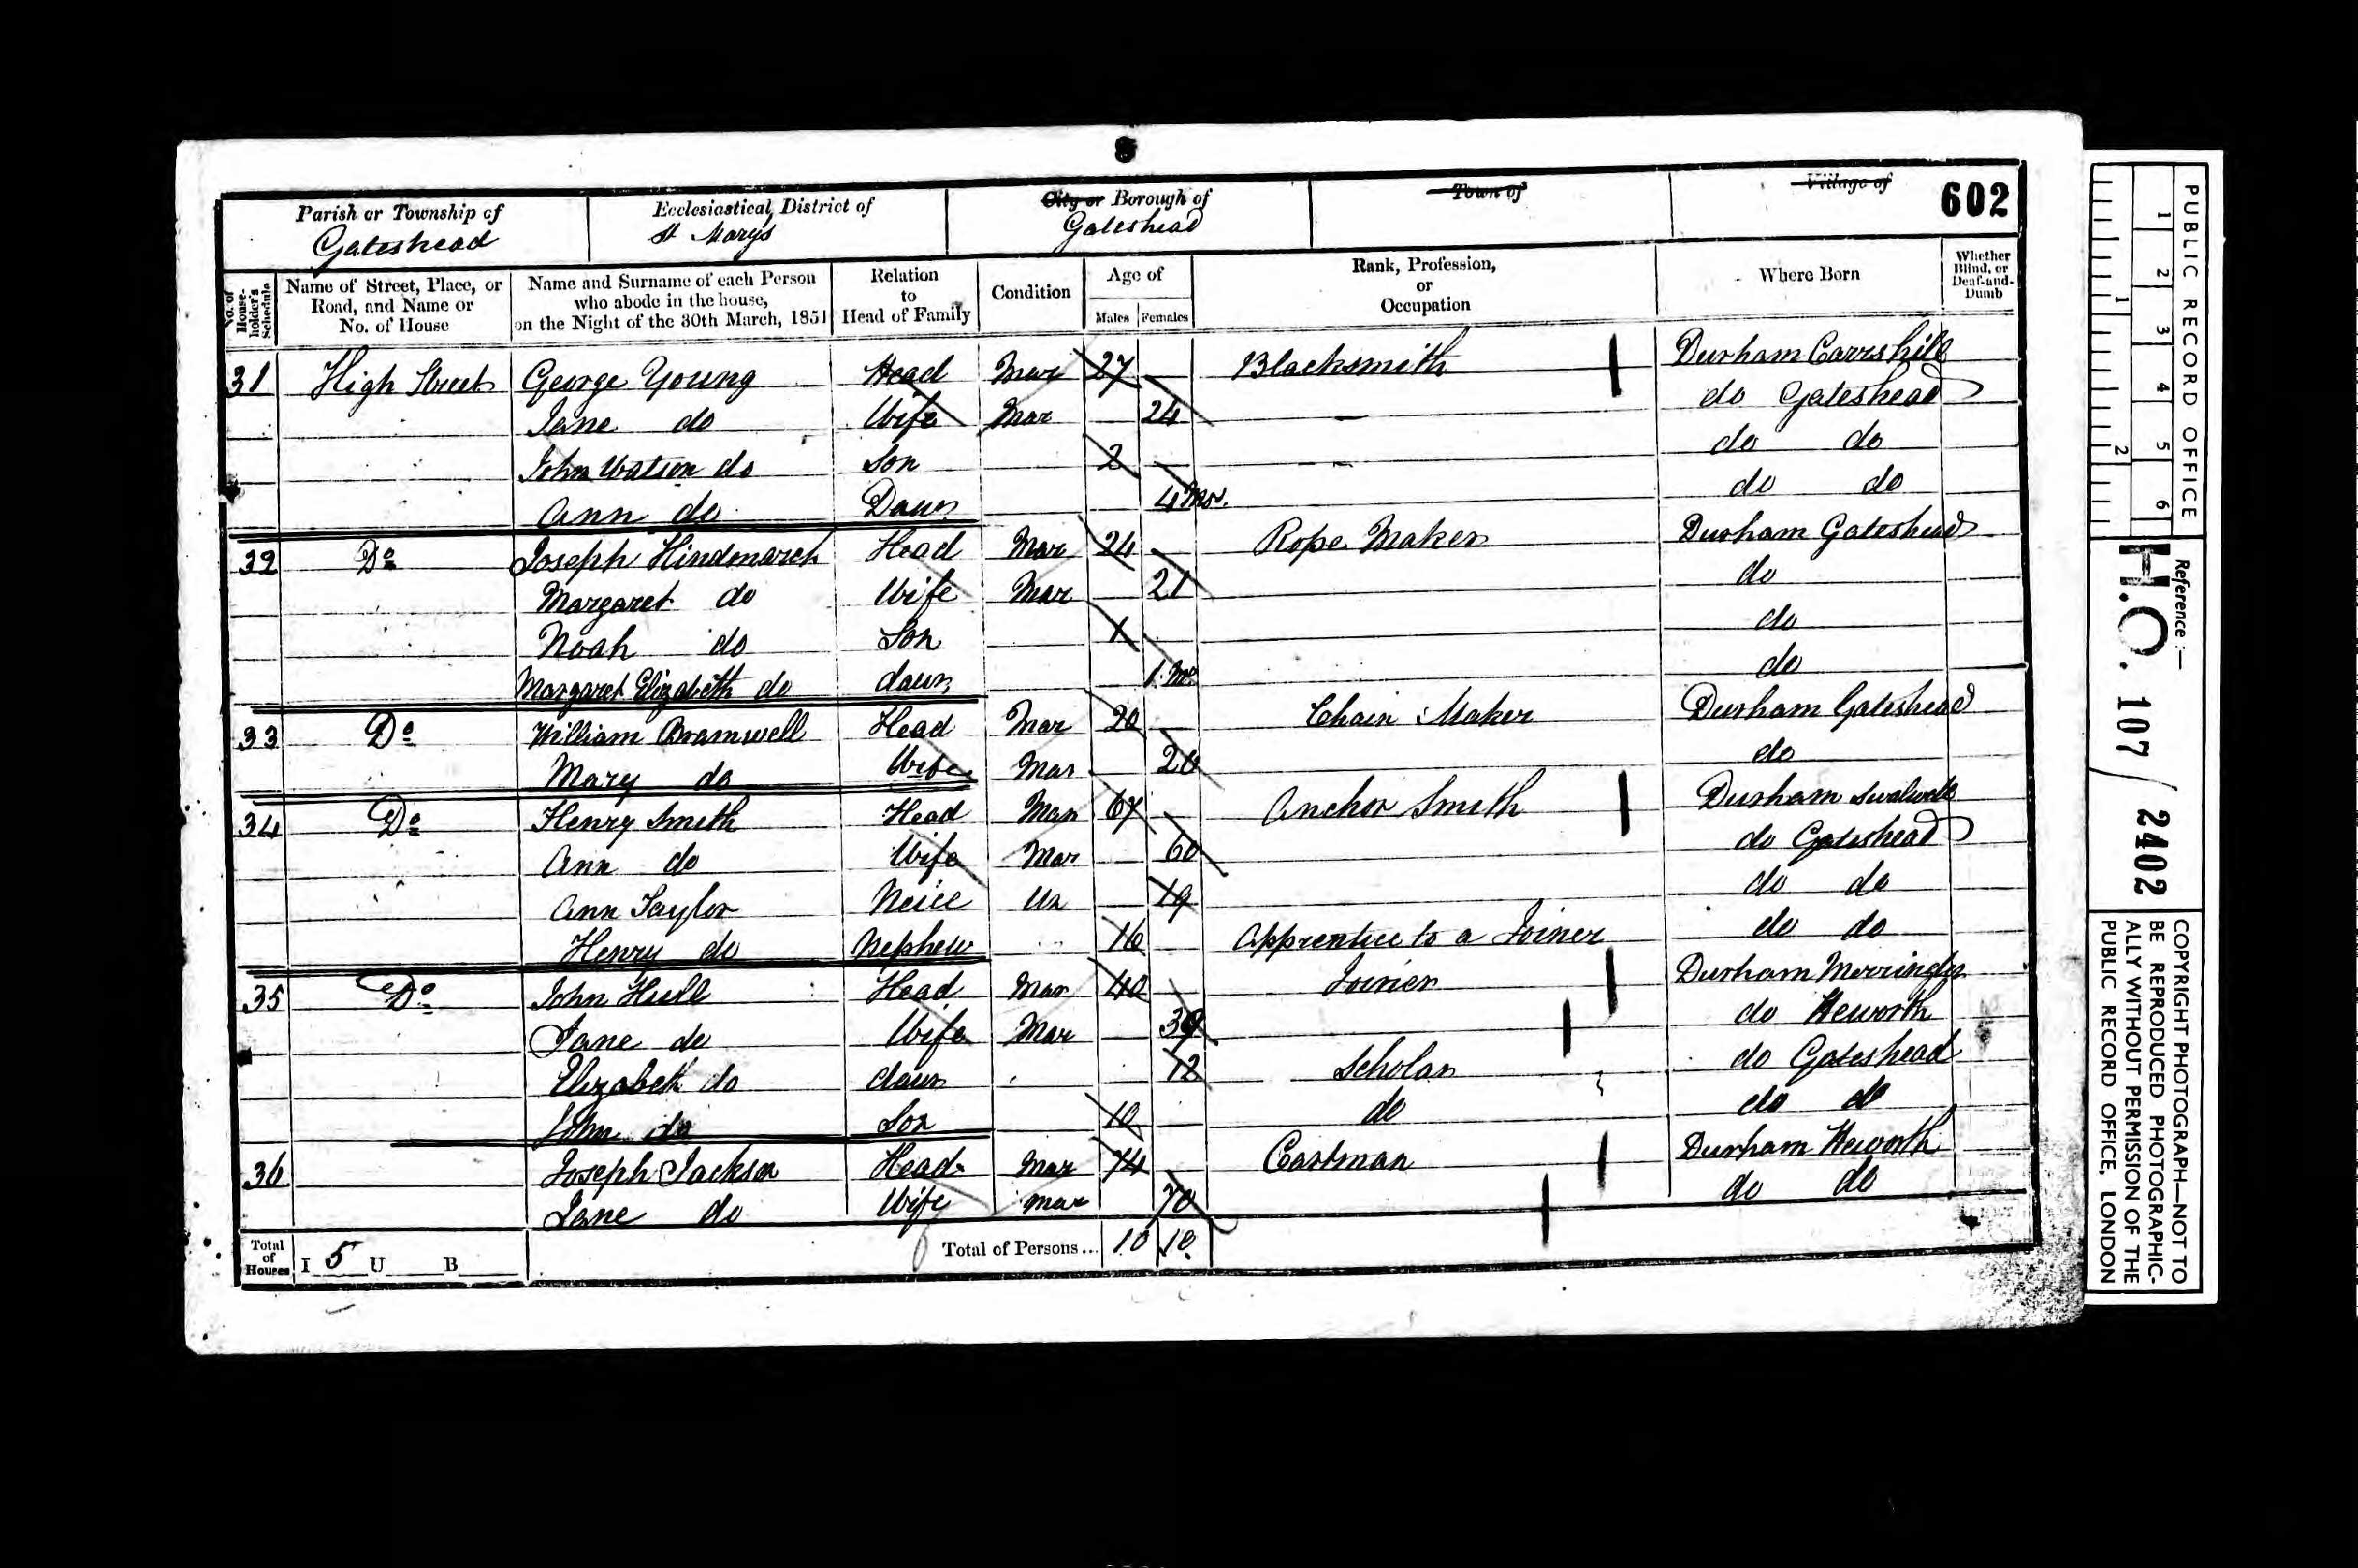 8
Parish or Township of Ecclesiastical District of City or Borough of Town of Village of 602
Gateshead St Marys Gateshead
No. of House-holder's Schedule Name of Street, Place, or Road, and Name or No. of House Name and Surname of each Person who abode in the house, on the Night of the 30th March, 1851 Relation to Head of Family Condition Age of Males Females Rank, Profession, or Occupation Where Born Whether Blind, or Deaf-and-Dumb
31 High Street George Young Head Mar 27 Blacksmith Durham Carrshill
Jane do Wife Mar 24 do Gateshead
John Watson do Son 2 do do
Ann do Daur 4 Mos. do do
32 Do Joseph Hindmarch Head Mar 24 Rope Maker Durham Gateshead
Margaret do Wife Mar 21 do
Noah do Son 1 do
Margaret Elizabeth do daur 1 Mo. do
33 Do William Bramwell Head Mar 20 Chain Maker Durham Gateshead
Mary do Wife Mar 20 do
34 Do Henry Smith Head Mar 67 Anchor Smith Durham Swalwell
Ann do Wife Mar 60 do Gateshead
Ann Taylor Neice Un 19 do do
Henry do Nephew 16 Apprentice to a Joiner do do
35 Do John Hull Head Mar 40 Joiner Durham Merrington
Jane do Wife Mar 39 do Heworth
Elizabeth do daur 12 Scholar do Gateshead
John do Son 10 do do do
36 Joseph Jackson Head Mar 74 Cartman Durham Heworth
Jane do Wife Mar 70 do do
Total of Houses I 5 U B Total of Persons... 10 10
PUBLIC RECORD OFFICE
1 2 3 4 5 6
1 2
Reference:-
H.O. 107 / 2402
COPYRIGHT PHOTOGRAPH—NOT TO
BE REPRODUCED PHOTOGRAPHIC-
ALLY WITHOUT PERMISSION OF THE
PUBLIC RECORD OFFICE, LONDON